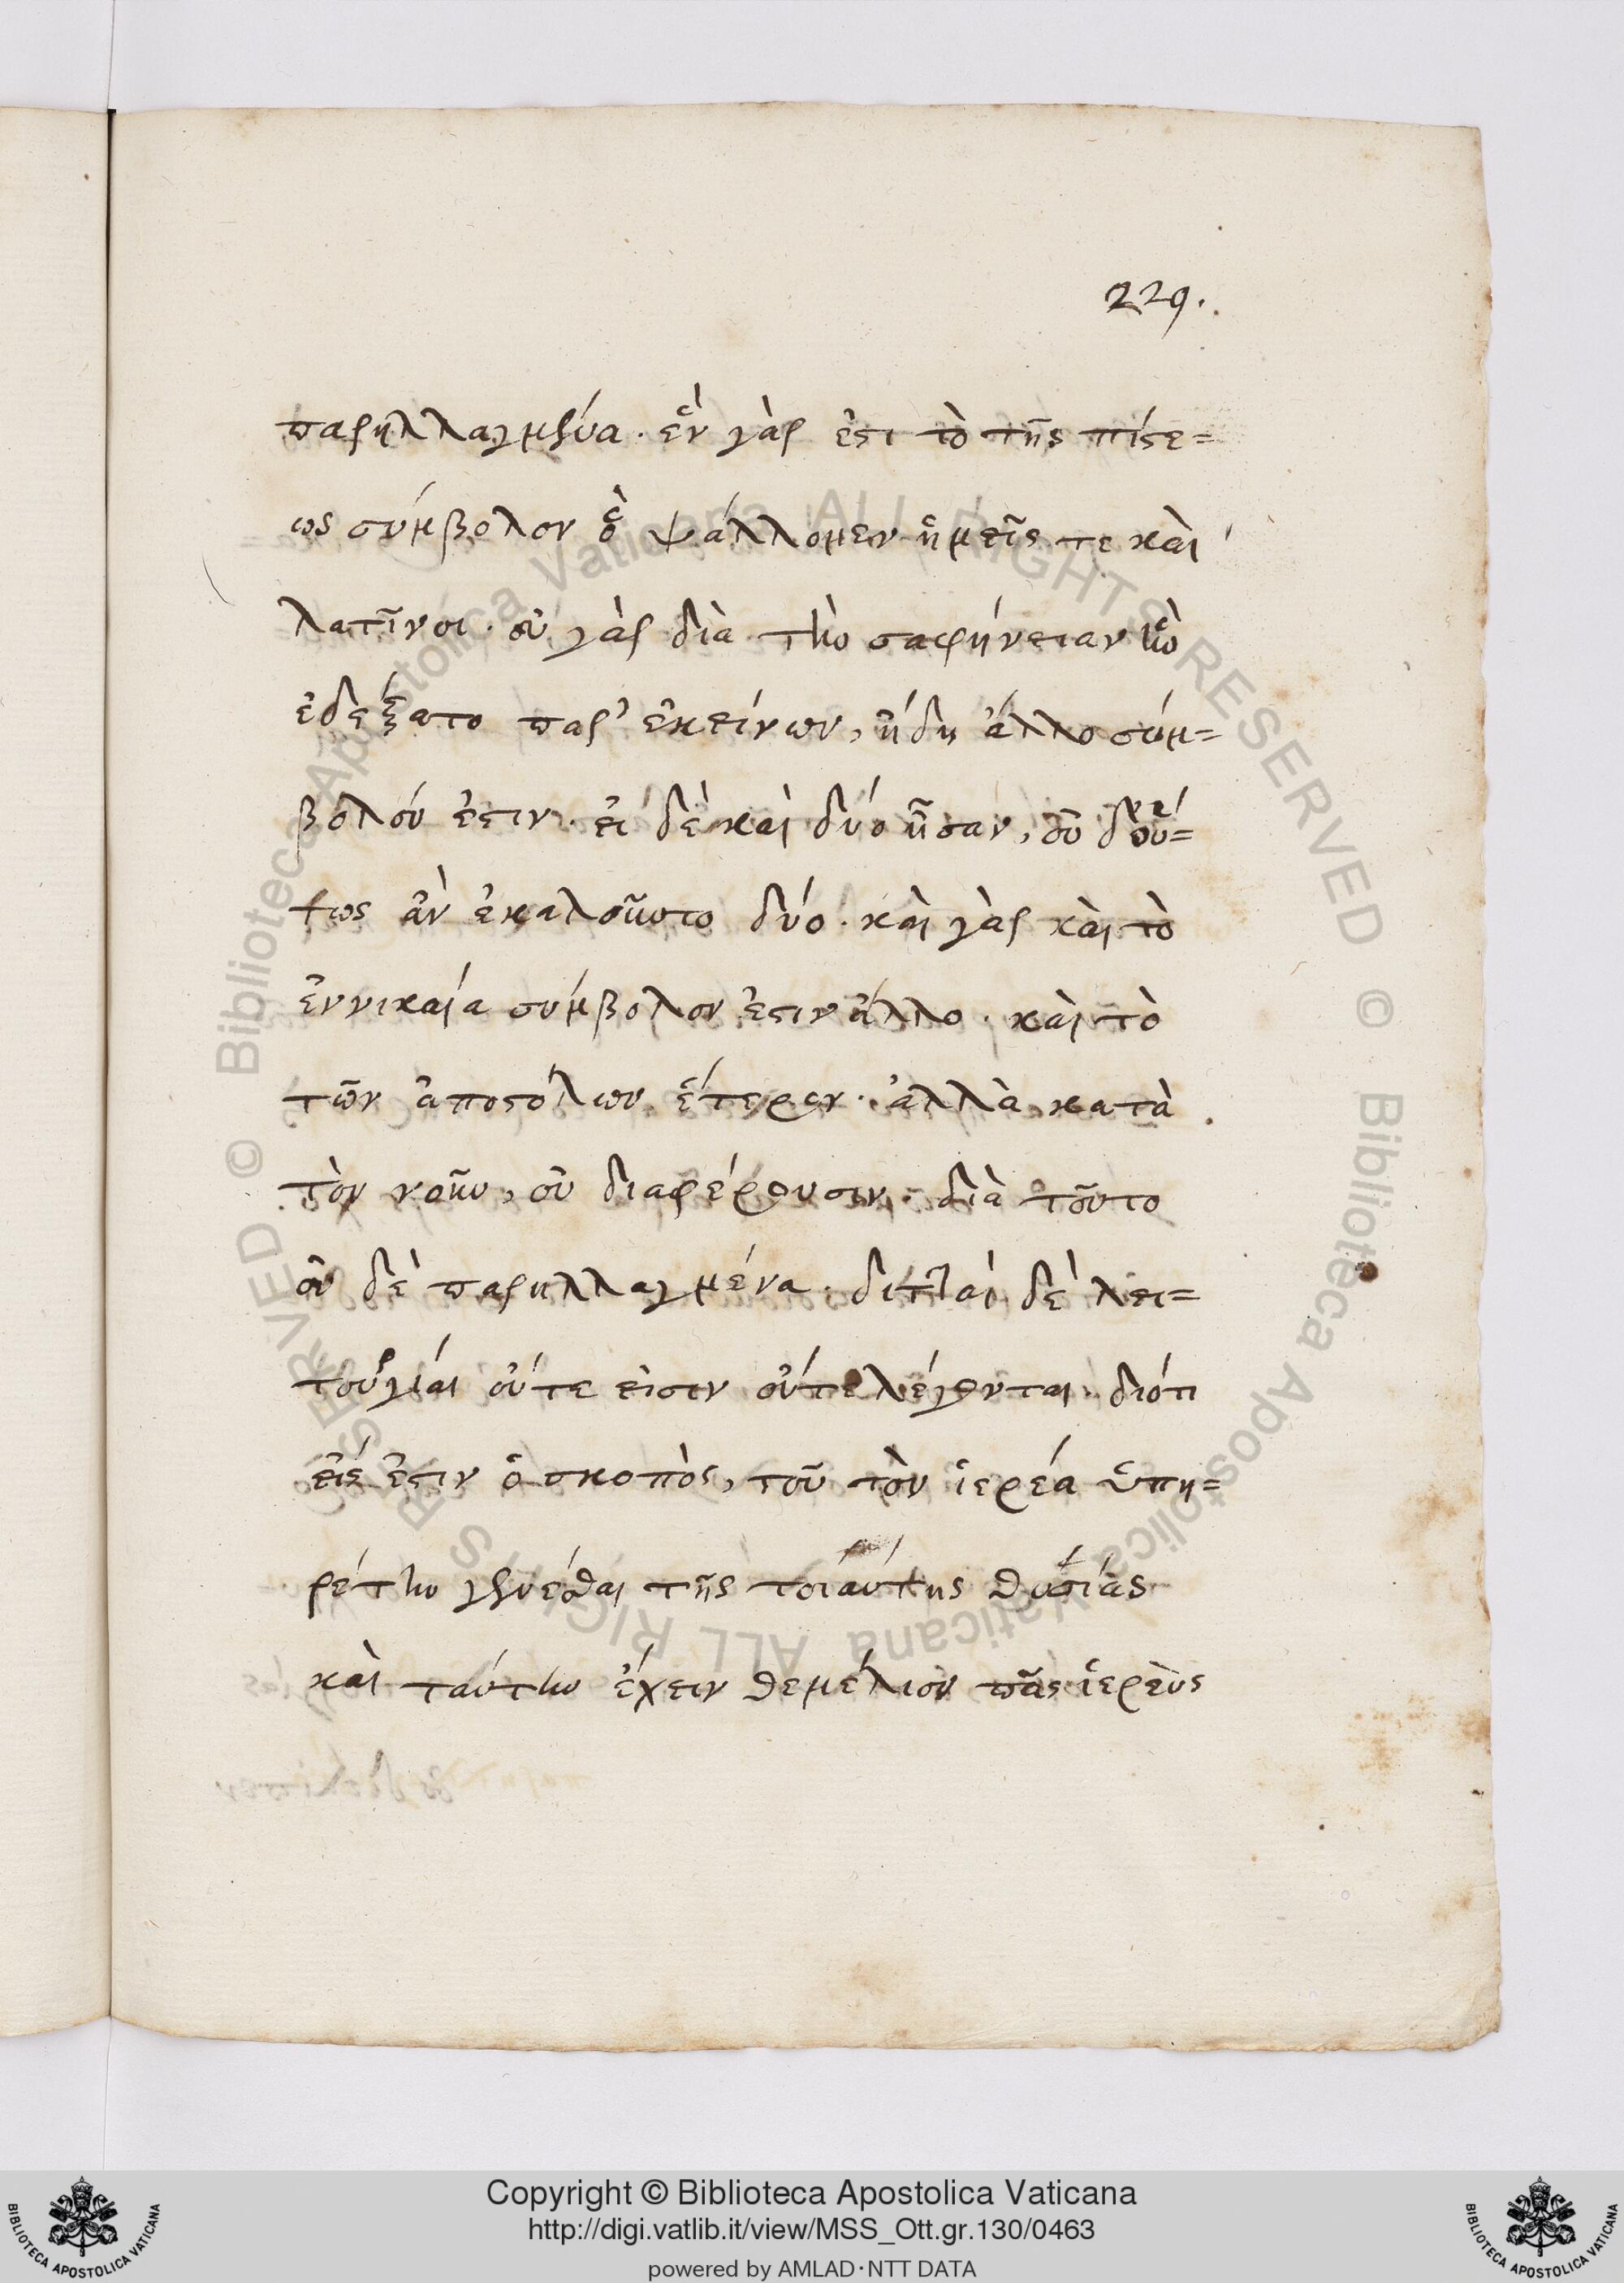 229.
παρηλλαγμένα. ἓν γάρ ἐστι τὸ τῆς πίστε=
ως σύμβολον ὃ ψάλλομεν ἡμεῖς τε καὶ
λατῖνοι. οὐ γὰρ διὰ τὴν σαφήνειαν ἣν
ἐδέξατο παρ' ἐκείνων, ἤδη ἄλλο σύμ=
βολόν ἐστιν. εἰ δὲ καὶ δύο ἦσαν, οὐ δευ=
τως ἂν ἐκαλοῦντο δύο. καὶ γὰρ καὶ τὸ
ἐν νικαία σύμβολον ἐστιν ἄλλο. καὶ τὸ
τῶν ἀποστόλων ἕτερον. ἀλλὰ κατὰ
τὸν νοῦν, οὐ διαφέρουσιν. διὰ τοῦτο
οὐ δὲ παρηλλαγμένα. διτταὶ δὲ λει=
τουργίαι οὔτε εἰσιν οὔτε λέγονται. διότι
εἷς ἐστιν ὁ σκοπὸς, τοῦ τὸν ἱερέα ὑπη=
ρέτην γενέσθαι τῆς τοιαύτης θυσίας
καὶ ταύτην ἔχειν θεμέλιον πᾶς ἱερεὺς
Copyright © Biblioteca Apostolica Vaticana
http://digi.vatlib.it/view/MSS_Ott.gr.130/0463
powered by AMLAD·NTT DATA
© Biblioteca Apostolica Vaticana ALL RIGHTS RESERVED
© Biblioteca Apostolica Vaticana ALL RIGHTS RESERVED
BIBLIOTECA APOSTOLICA VATICANA
BIBLIOTECA APOSTOLICA VATICANA